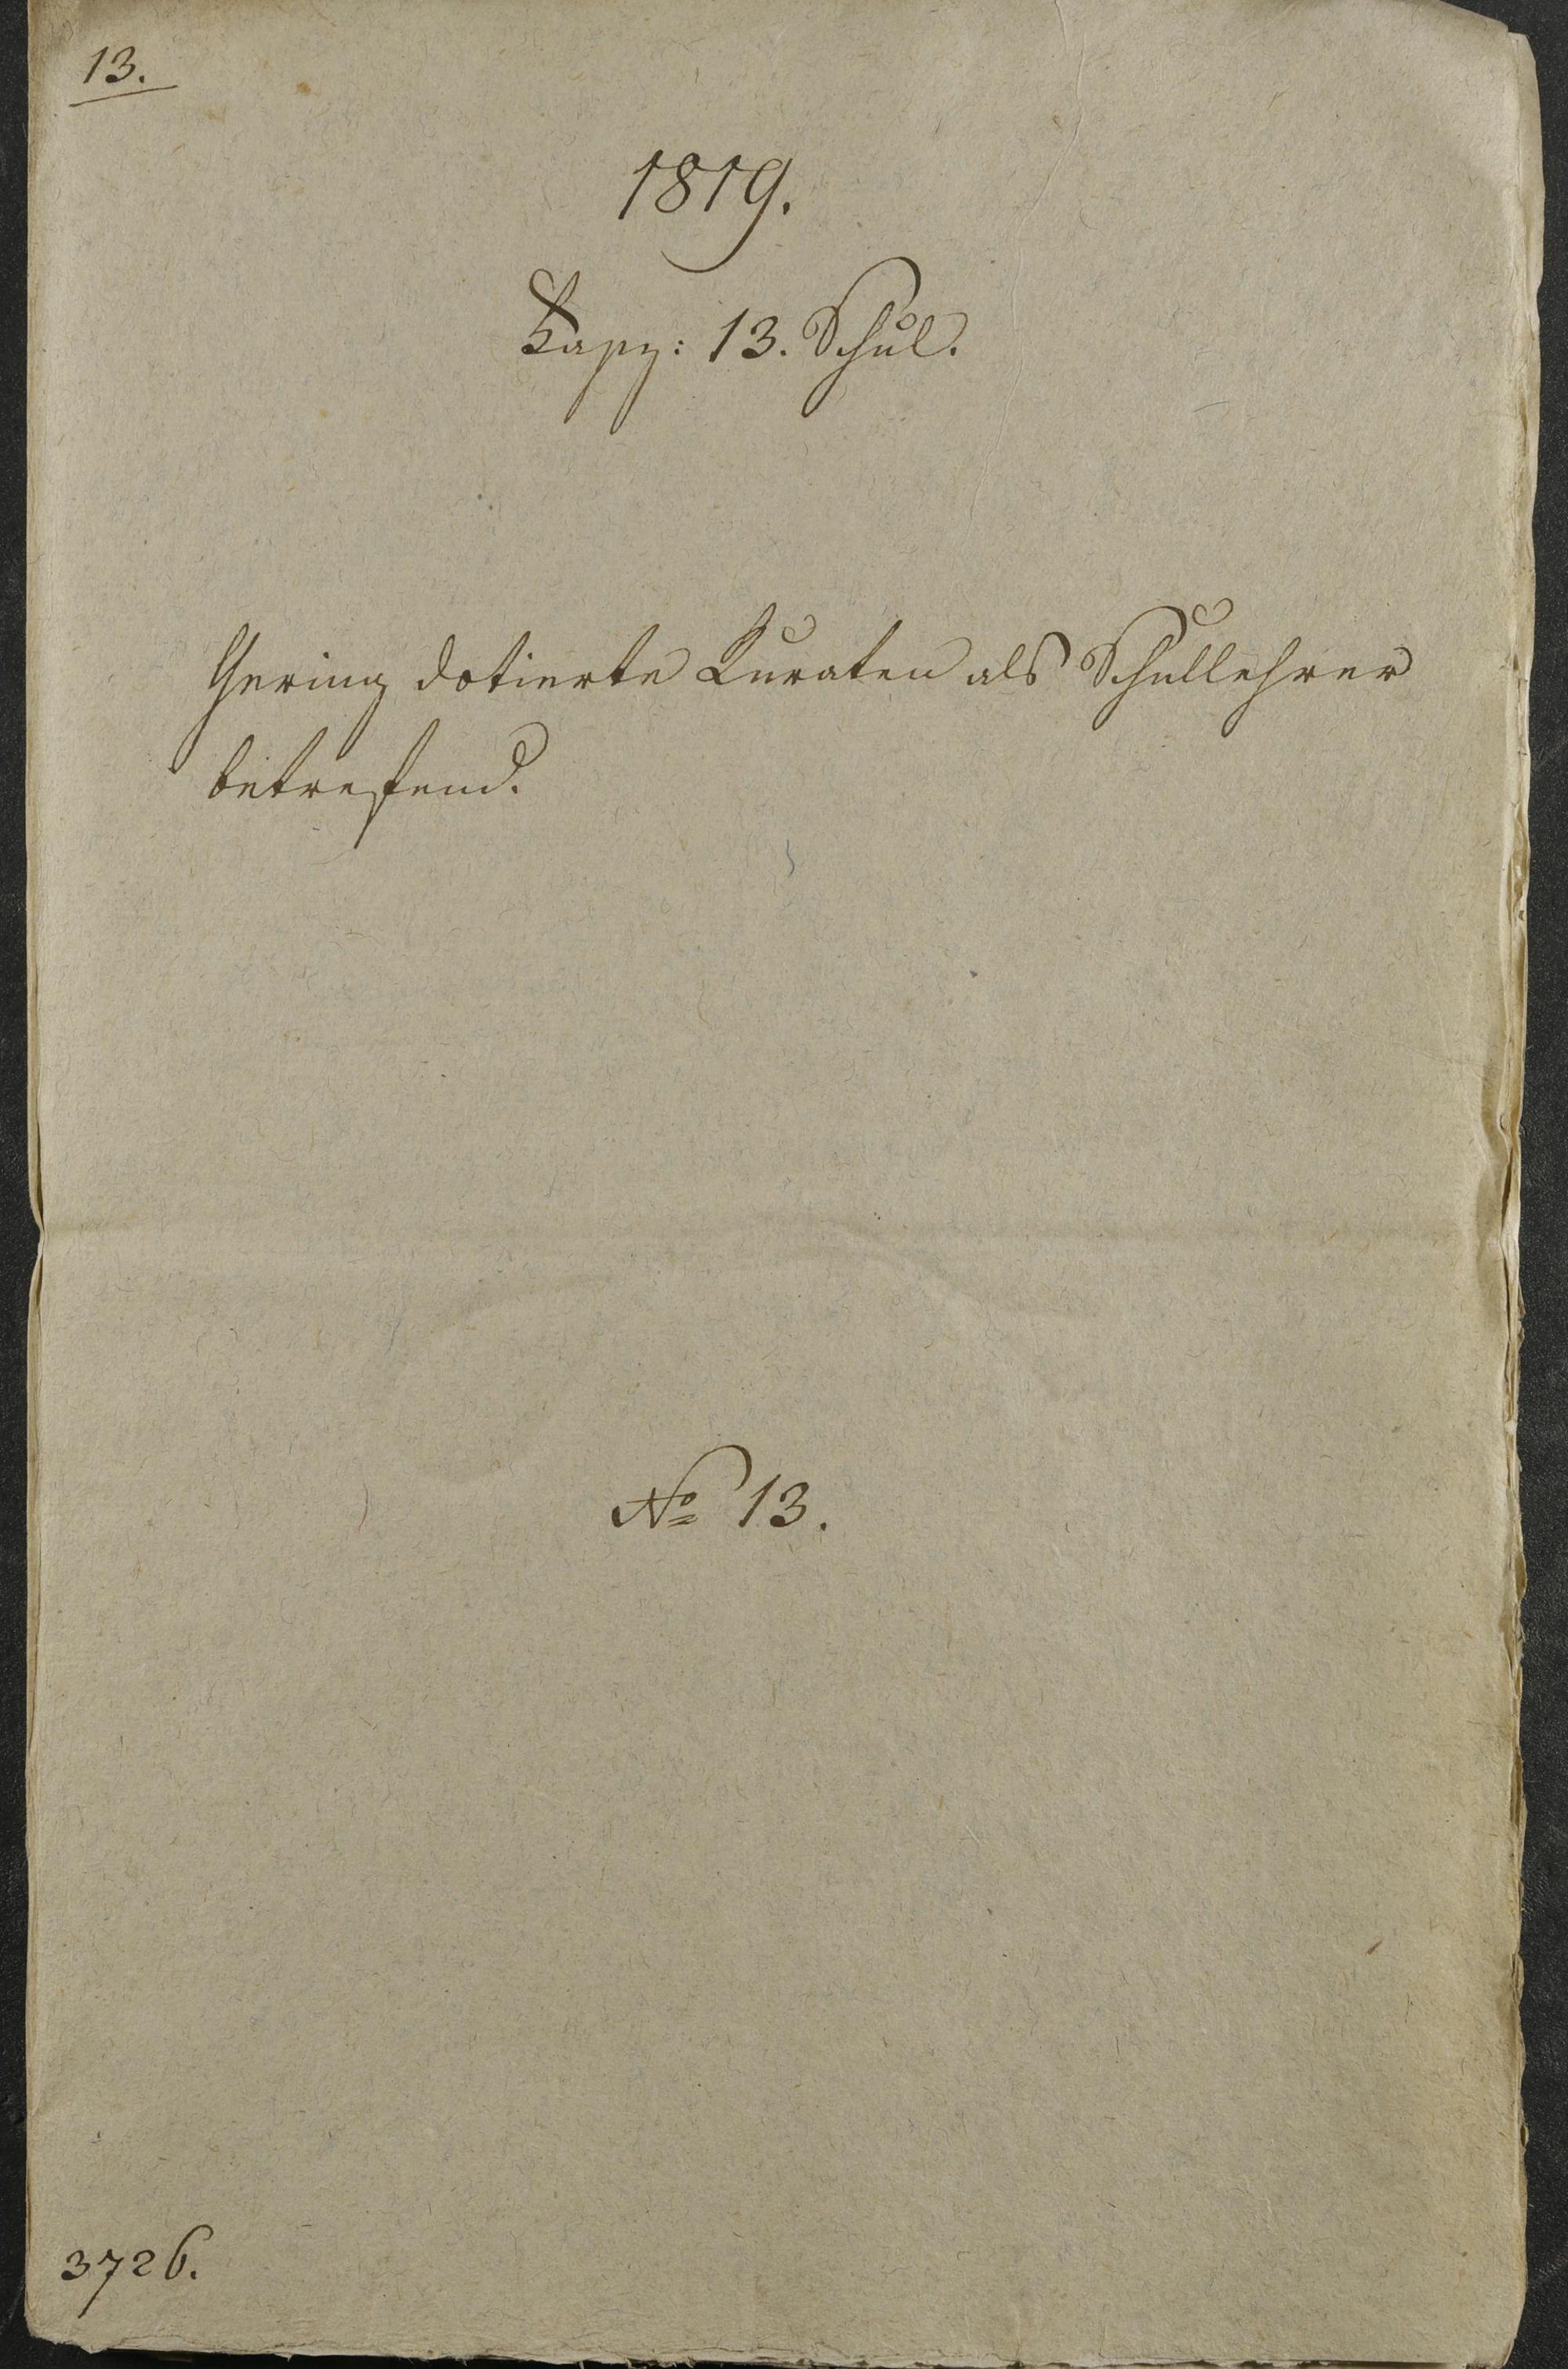 13.
1819.
Fasz: 13. Schul.
Gering dotierte Kuraten als Schullehrer
betreffend.
No 13.
3726.